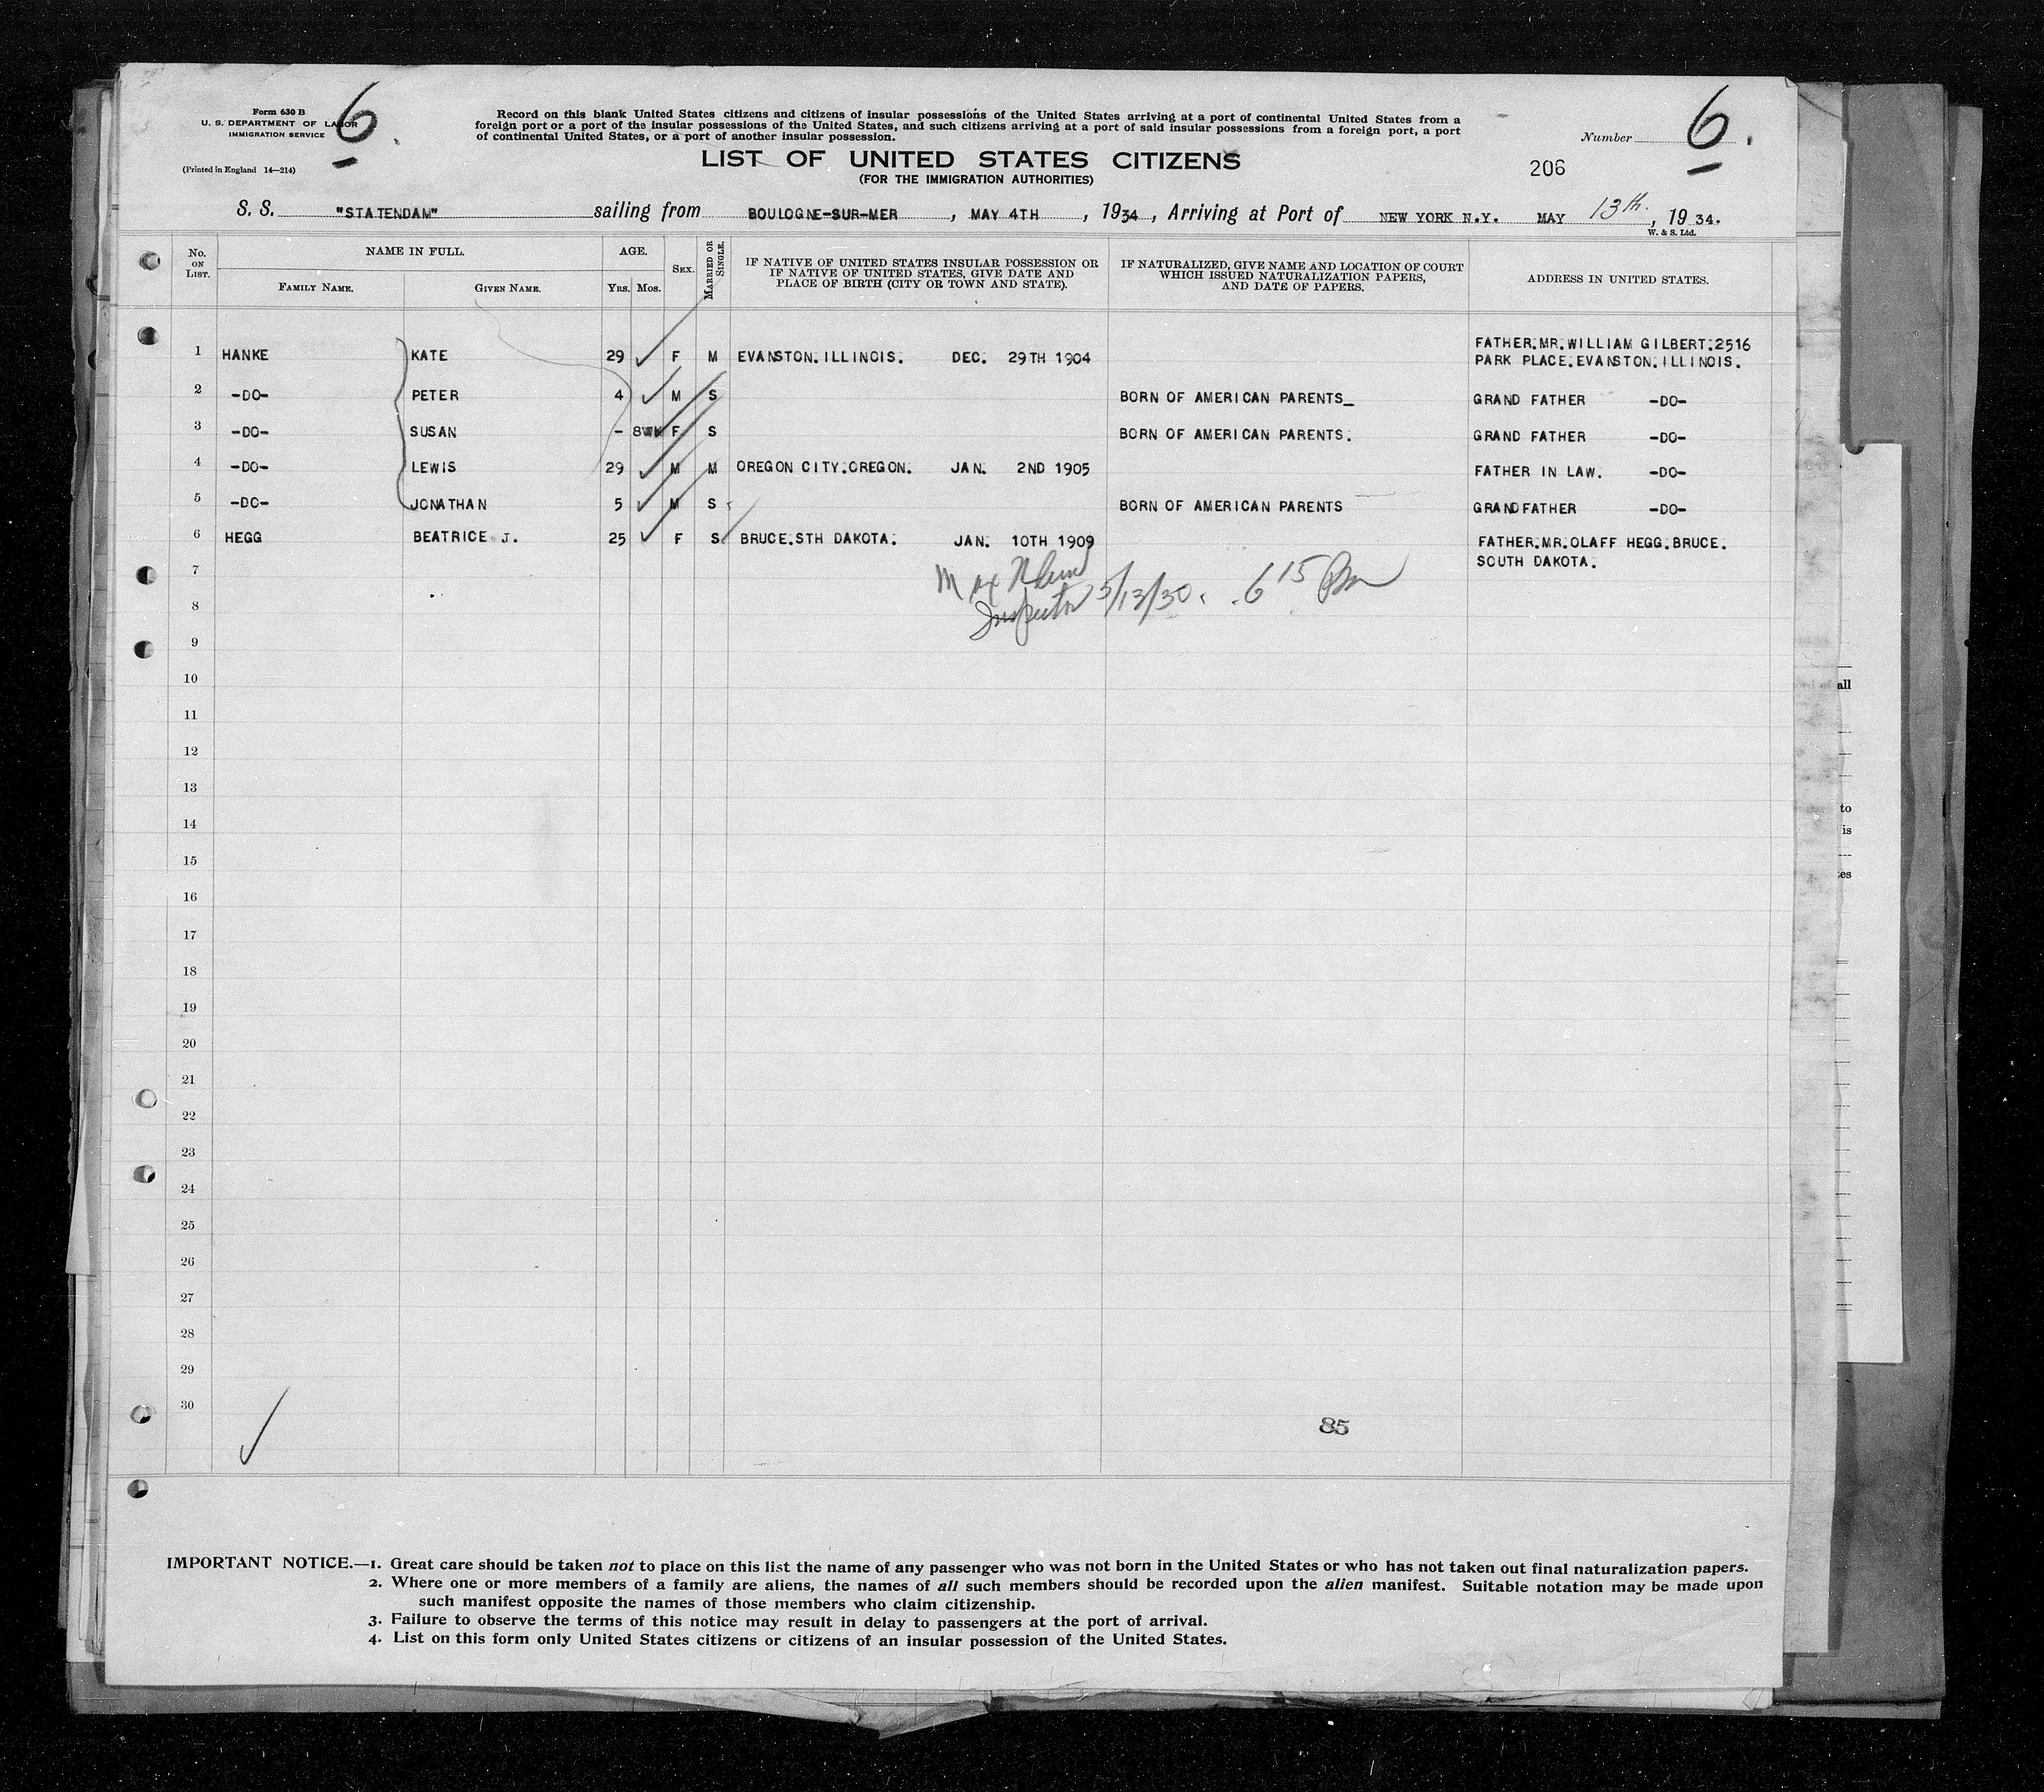 Form 630 B
U. S. DEPARTMENT OF LABOR
IMMIGRATION SERVICE
(Printed in England 14—214)
6.
Record on this blank United States citizens and citizens of insular possessions of the United States arriving at a port of continental United States from a
foreign port or a port of the insular possessions of the United States, and such citizens arriving at a port of said insular possessions from a foreign port, a port
of continental United States, or a port of another insular possession.
Number 6.
LIST OF UNITED STATES CITIZENS
(FOR THE IMMIGRATION AUTHORITIES)
206
S. S. "STATENDAM" sailing from BOULOGNE-SUR-MER, MAY 4TH, 1934, Arriving at Port of NEW YORK N.Y. MAY 13th, 1934.
W. & S. Ltd.
No. ON LIST.
NAME IN FULL.
FAMILY NAME. GIVEN NAME.
AGE.
YRS. MOS.
SEX.
MARRIED OR SINGLE.
IF NATIVE OF UNITED STATES INSULAR POSSESSION OR
IF NATIVE OF UNITED STATES, GIVE DATE AND
PLACE OF BIRTH (CITY OR TOWN AND STATE).
IF NATURALIZED, GIVE NAME AND LOCATION OF COURT
WHICH ISSUED NATURALIZATION PAPERS,
AND DATE OF PAPERS.
ADDRESS IN UNITED STATES.
1 HANKE KATE 29 F M EVANSTON.ILLINOIS. DEC. 29TH 1904 FATHER.MR.WILLIAM GILBERT.2516
PARK PLACE.EVANSTON.ILLINOIS.
2 -DO- PETER 4 M S BORN OF AMERICAN PARENTS_ GRAND FATHER -DO-
3 -DO- SUSAN - 8WK F S BORN OF AMERICAN PARENTS. GRAND FATHER -DO-
4 -DO- LEWIS 29 M M OREGON CITY.OREGON. JAN. 2ND 1905 FATHER IN LAW. -DO-
5 -DO- JONATHAN 5 M S BORN OF AMERICAN PARENTS GRANDFATHER -DO-
6 HEGG BEATRICE J. 25 F S BRUCE.STH DAKOTA. JAN. 10TH 1909 FATHER.MR.OLAFF HEGG.BRUCE.
SOUTH DAKOTA.
7
Max
Inspector 5/13/30. 6 15 Pm
8
9
10
11
12
13
14
15
16
17
18
19
20
21
22
23
24
25
26
27
28
29
30
85
IMPORTANT NOTICE.—1. Great care should be taken not to place on this list the name of any passenger who was not born in the United States or who has not taken out final naturalization papers.
2. Where one or more members of a family are aliens, the names of all such members should be recorded upon the alien manifest. Suitable notation may be made upon
such manifest opposite the names of those members who claim citizenship.
3. Failure to observe the terms of this notice may result in delay to passengers at the port of arrival.
4. List on this form only United States citizens or citizens of an insular possession of the United States.
all
to
is